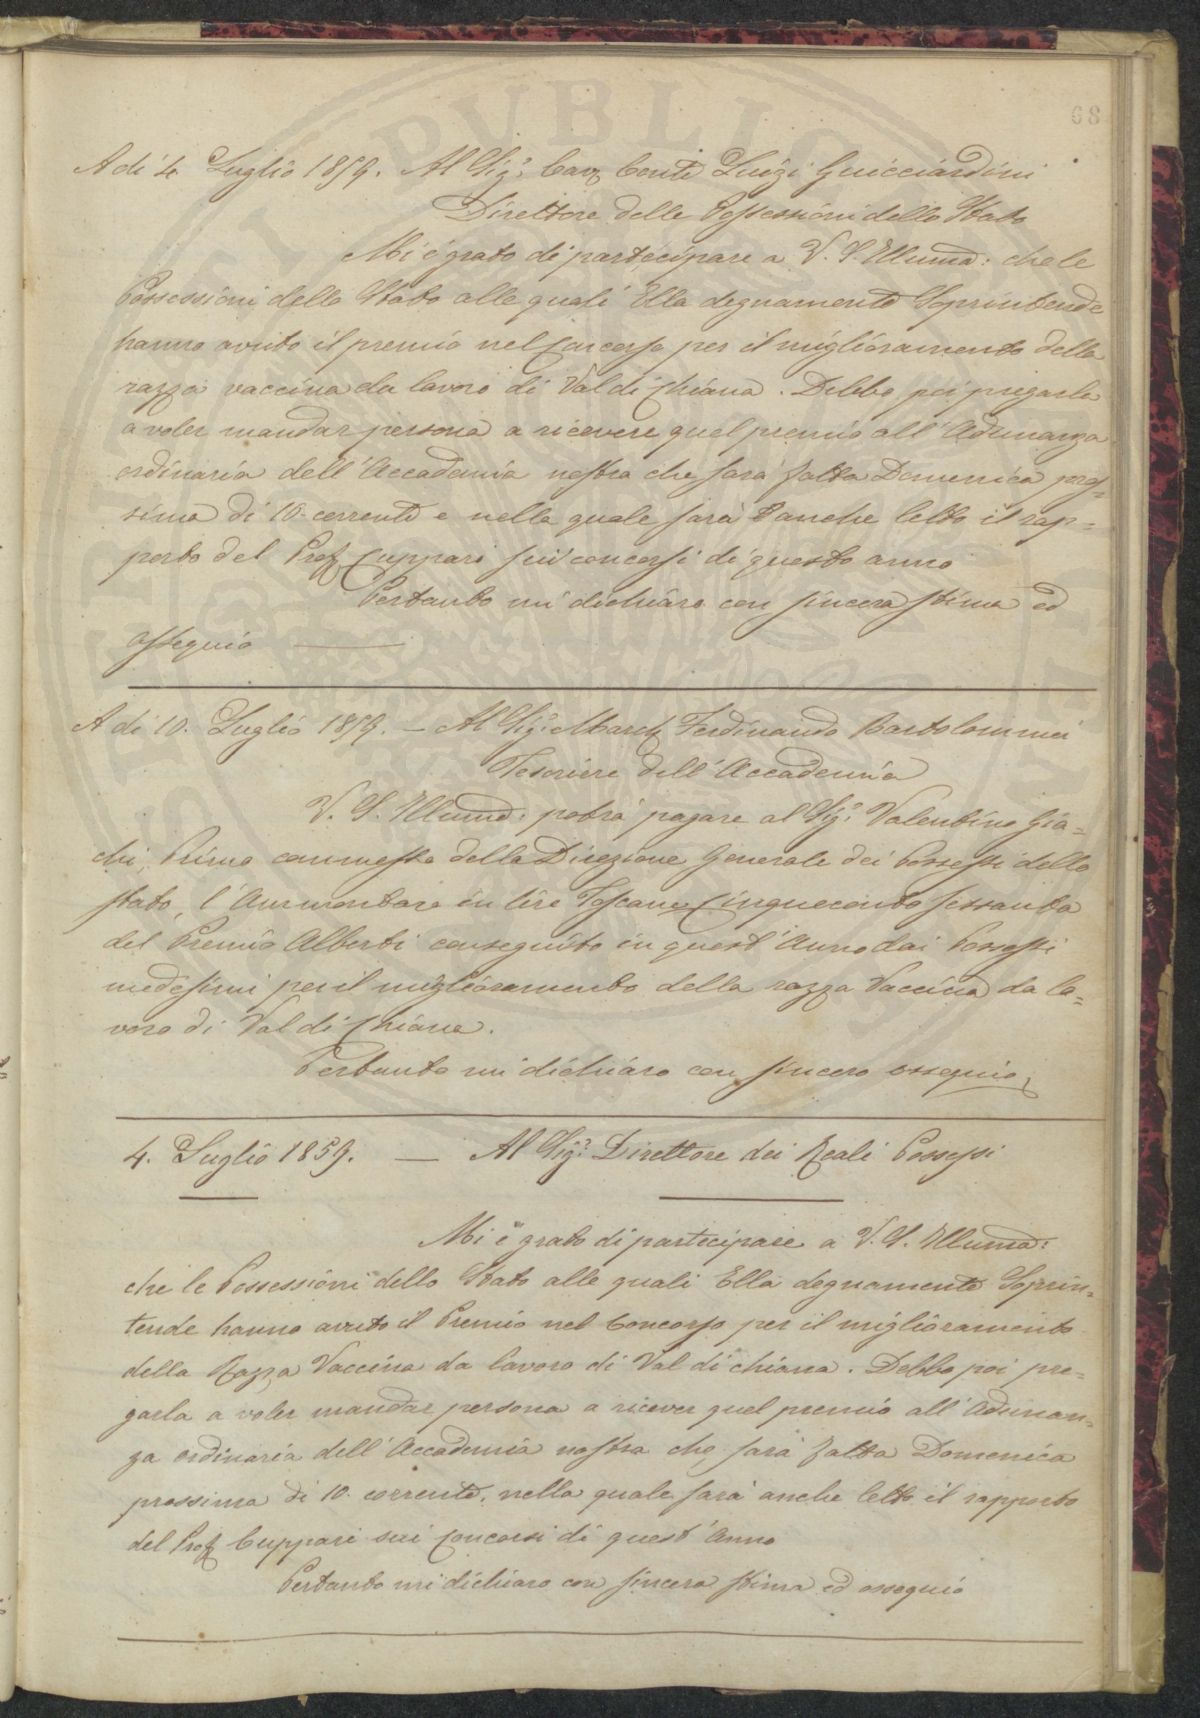 68
A di 4. Luglio 1859. Al Sig.r Cav. Conte Luigi Guicciardini
Direttore delle Possessioni dello Stato
Mi è grato di partecipare a V. S. Illuma: che le
Possessioni dello Stato alle quali Ella degnamente Soprintende
hanno avuto il premio nel Concorso per il miglioramento della
razza vaccina da lavoro di Val di Chiana. Debbo poi pregarla
a voler mandar persona a ricevere quel premio all'Adunanza
ordinaria dell'Accademia nostra che sarà fatta Domenica pros=
sima di 10. corrente e nella quale sarà anche letto il rap=
porto del Prof. Cuppari sui concorsi di questo anno
Pertanto mi dichiaro con sincera stima ed
ossequio
A di 10. Luglio 1859. — Al Sig.r March. Ferdinando Bartolommei
Tesoriere dell'Accademia
V. S. Illuma: potrà pagare al Sig.r Valentino Gia=
chi, Primo commesso della Direzione Generale dei Possessi dello
Stato, l'Ammontare in lire Toscane Cinquecento sessanta
del Premio Alberti conseguito in quest'Anno dai Possessi
medesimi per il miglioramento della razza Vaccina da la=
voro di Val di Chiana.
Pertanto mi dichiaro con sincero ossequio
4. Luglio 1859. — Al Sig.r Direttore dei Reali Possessi
Mi è grato di partecipare a V. S. Illuma:
che le Possessioni dello Stato alle quali Ella degnamente Soprin=
tende hanno avuto il Premio nel Concorso per il miglioramento
della Razza Vaccina da lavoro di Val di Chiana. Debbo poi pre=
garla a voler mandar persona a ricever quel premio all'Adunan=
za ordinaria dell'Accademia nostra che sarà fatta Domenica
prossima di 10. corrente, nella quale sarà anche letto il rapporto
del Prof. Cuppari sui Concorsi di quest'Anno
Pertanto mi dichiaro con sincera stima ed ossequio